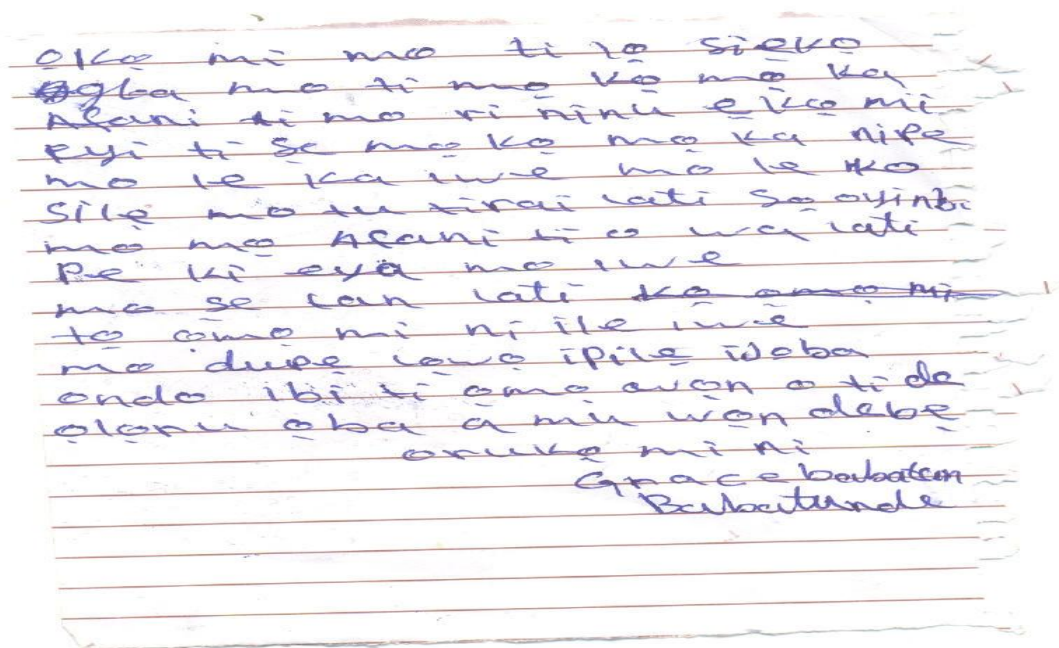 ọkọ mi mo ti lọ si ẹkọ
ọgba mo ti mọ kọ mọ ka
Afani ti mo ri ninu ẹkọ mi
eyi ti se mọ kọ mọ ka nipe
mo le ka iwe mo le kọ
silẹ mo tu tirai lati sọ oyinbi
mo mọ Afani ti o wa lati
Pe ki eya mo iwe
mo se lan lati kọ ọmọ mi
tọ ọmọ mi ni ile iwe
mo dupẹ lọwọ ipilẹ ijoba
ondo ibi ti ọmọ awọn o ti de
ọlọpu ọba a mu wọn debẹ
orukọ mi ni
Grace babatun
Babatunde